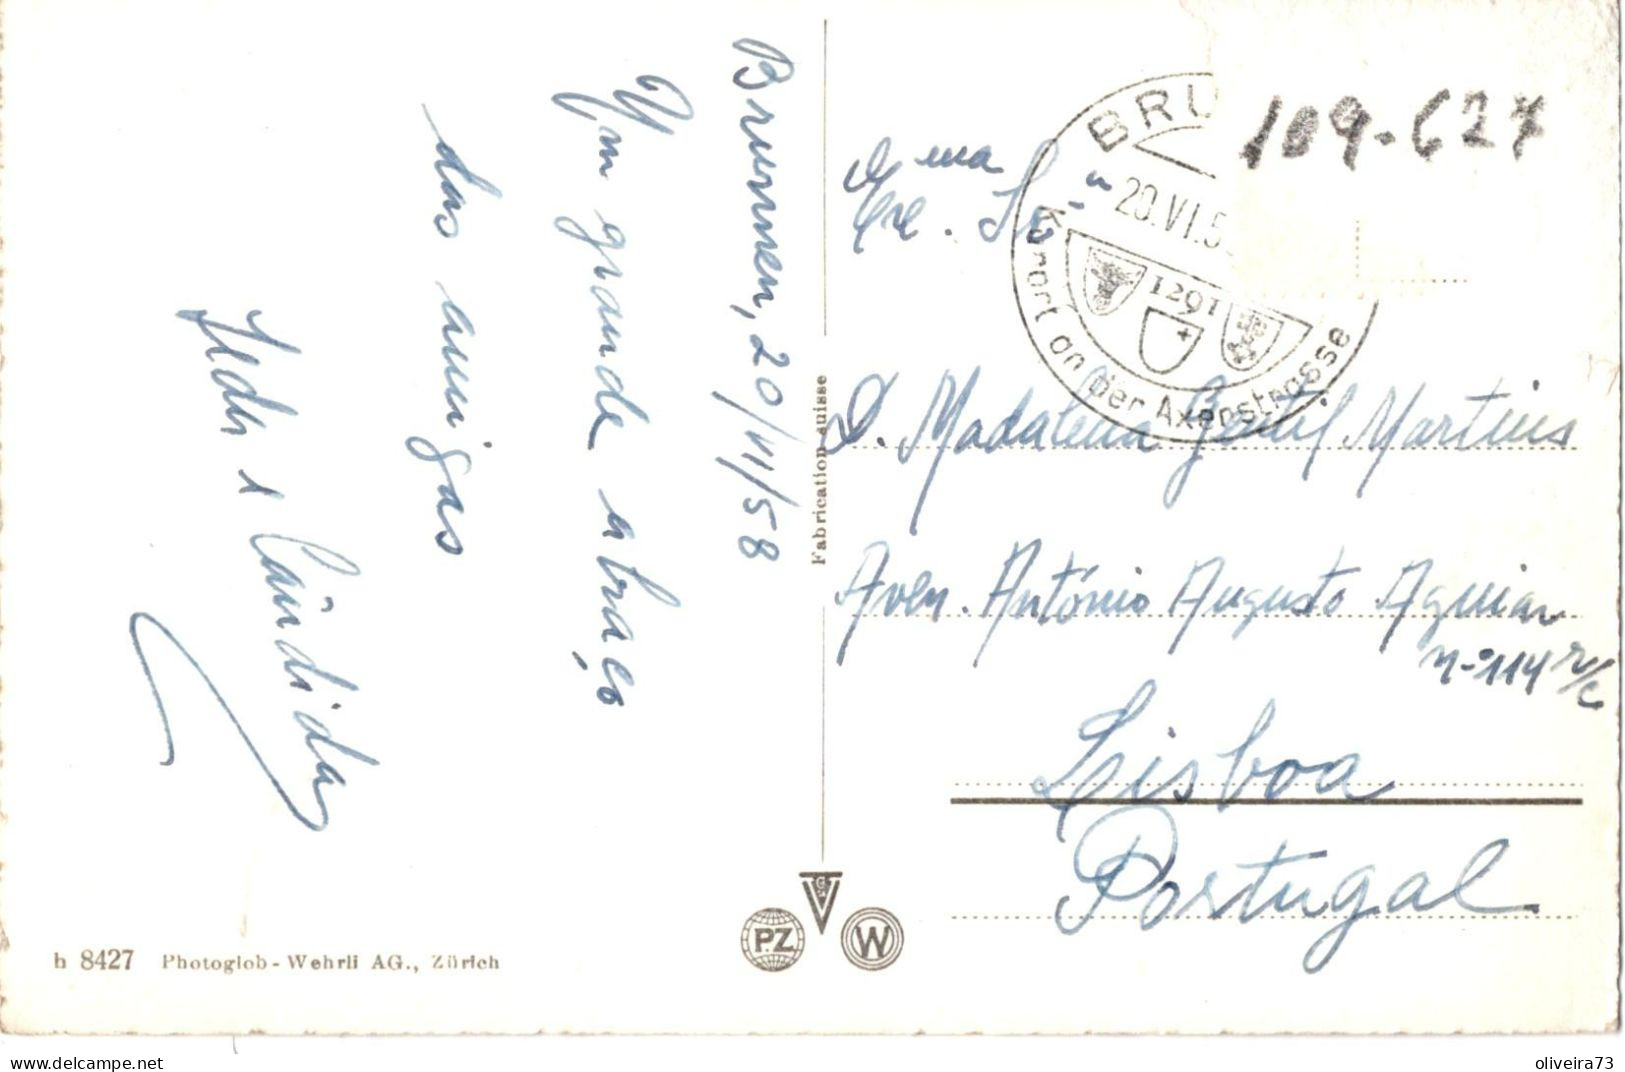 Brunnen, 20/VI/58
Um grande abraço
das amigas
e Cândida
Fabrication suisse
h 8427 Photoglob-Wehrli AG., Zürich
P.Z
W
BRU
20.VI.5
1291
Kurort an der Axenstrasse
109-627
Exc.ma Sr.a
D. Madalena Gentil Martins
Aven. António Augusto Aguiar
n-º 114 r/c
Lisboa
Portugal
www.delcampe.net
oliveira73